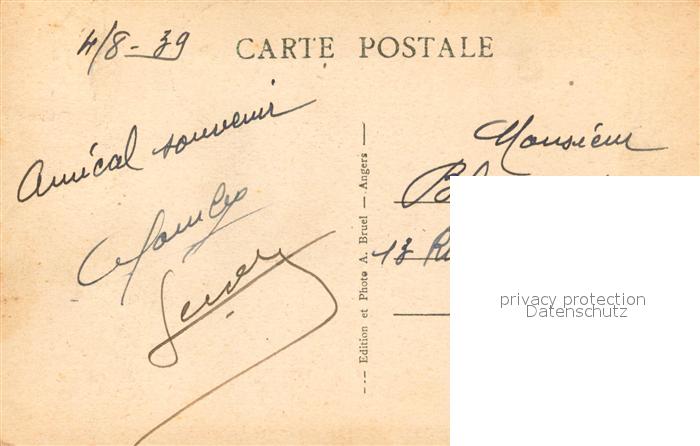 4/8-39
CARTE POSTALE
Amical souvenir
Edition et Photo A. Bruel — Angers
Monsieur
13
privacy protection
Datenschutz